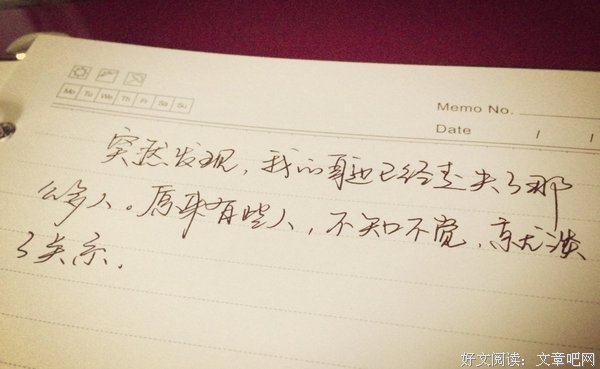 Mo Tu We Th Fr Sa Su
Memo No.
Date / /
突然发现，我的身边已经走失了那
么多人。原来有些人，不知不觉，就淡
了关系.
好文阅读：文章吧网